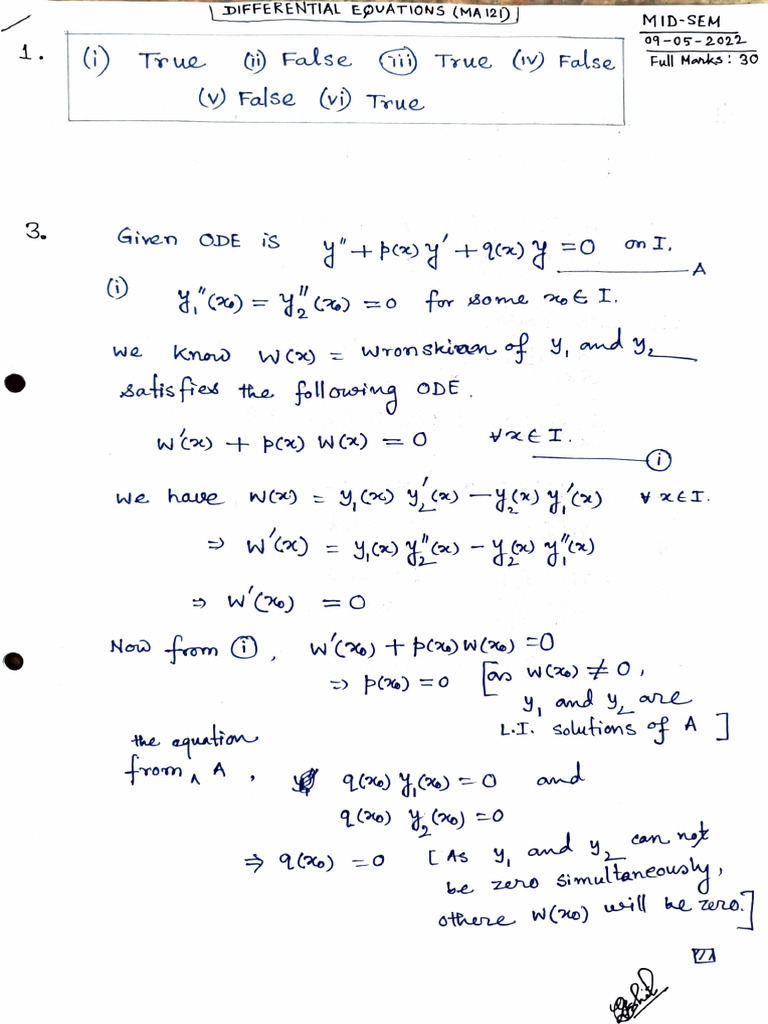 DIFFERENTIAL EQUATIONS (MA121)
MID-SEM
09-05-2022
Full Marks: 30
1. (i) True (ii) False (iii) True (iv) False
(v) False (vi) True
3. Given ODE is y'' + p(x) y' + q(x) y = 0 on I. —— A
(i) y₁''(x₀) = y₂''(x₀) = 0 for some x₀ ∈ I.
we know W(x) = wronskian of y₁ and y₂
satisfies the following ODE.
W'(x) + p(x) W(x) = 0 ∀ x ∈ I. —— (i)
we have W(x) = y₁(x) y₂'(x) − y₂(x) y₁'(x) ∀ x ∈ I.
⇒ W'(x) = y₁(x) y₂''(x) − y₂(x) y₁''(x)
⇒ W'(x₀) = 0
Now from (i), W'(x₀) + p(x₀) W(x₀) = 0
⇒ p(x₀) = 0 [as W(x₀) ≠ 0,
y₁ and y₂ are
L.I. solutions of A]
the equation
from ^ A, q(x₀) y₁(x₀) = 0 and
q(x₀) y₂(x₀) = 0
⇒ q(x₀) = 0 [As y₁ and y₂ can not
be zero simultaneously,
othere W(x₀) will be zero.]